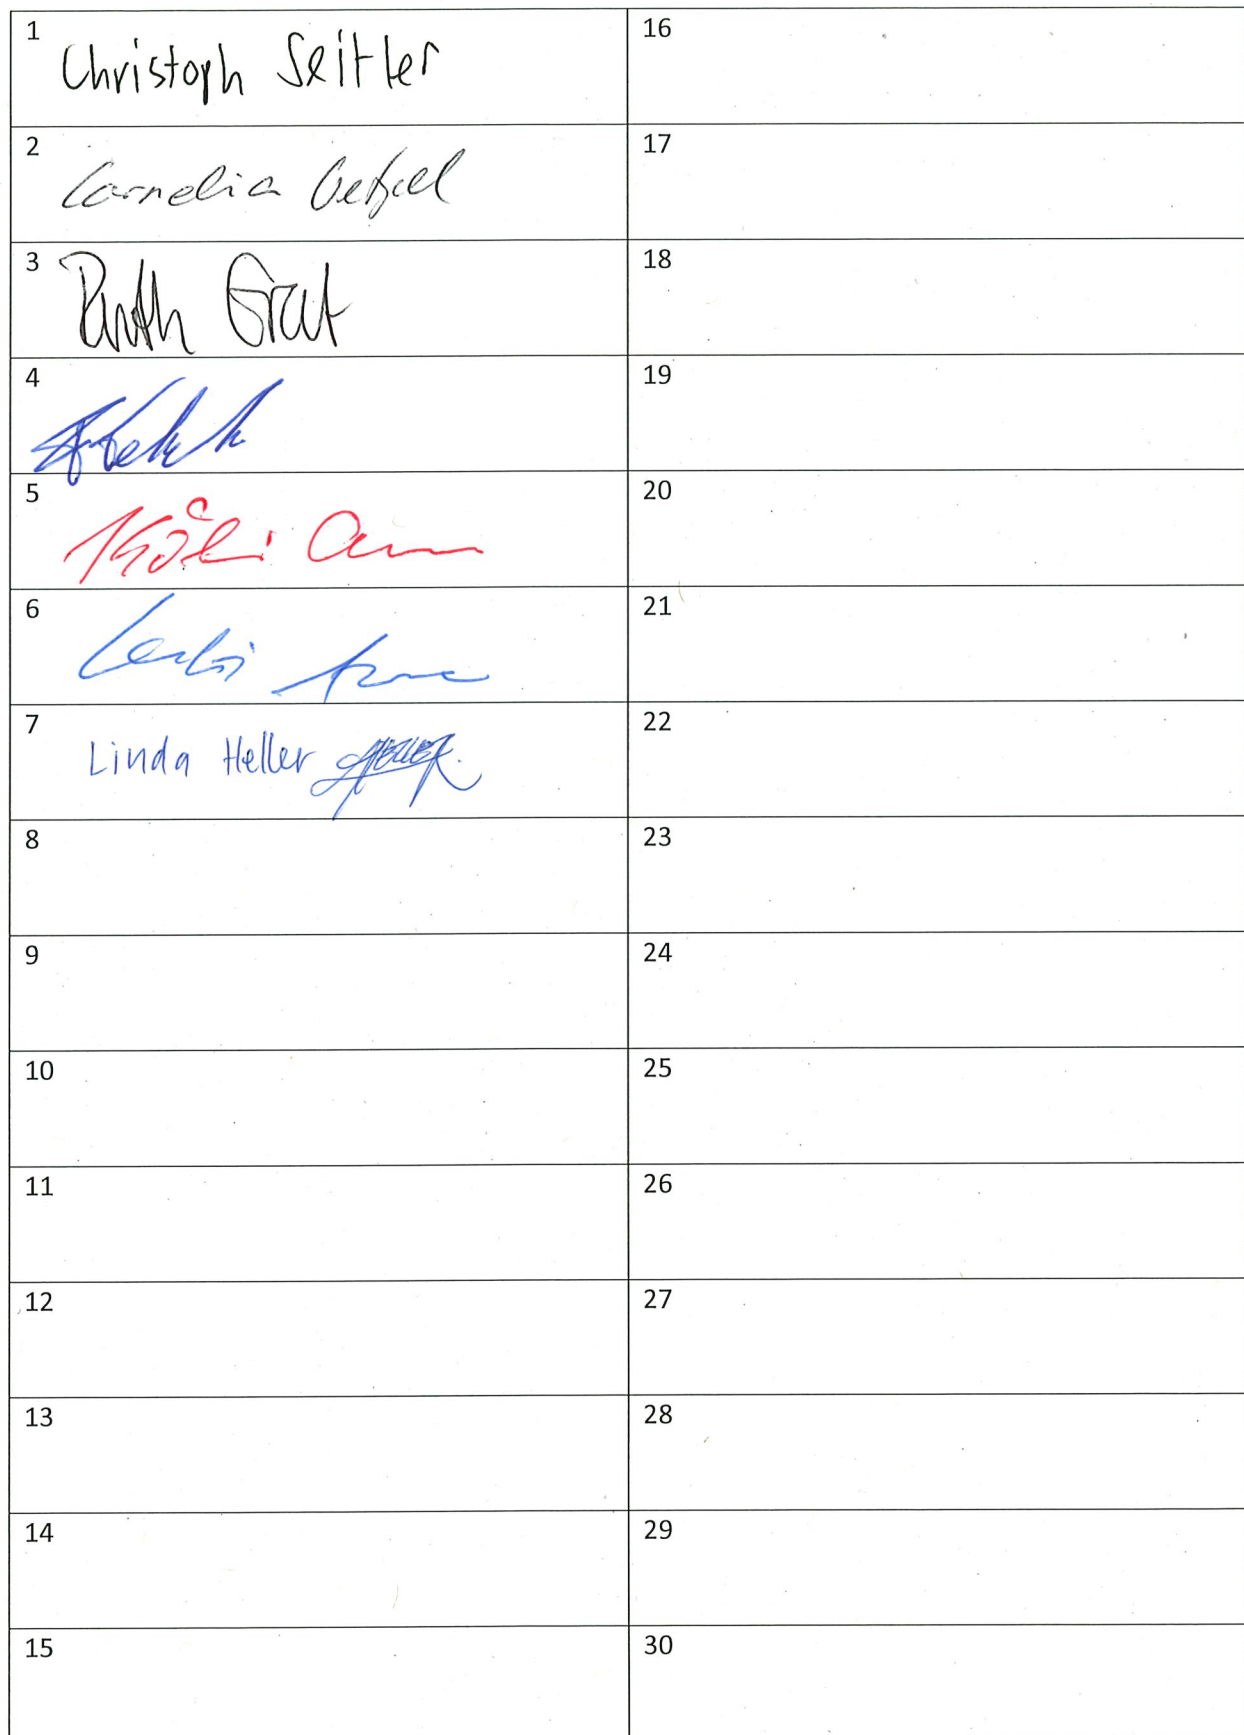 1
Christoph Seitler
2
Cornelia
3
Ruth Graf
4
5
6
7
Linda Heller
8
9
10
11
12
13
14
15
16
17
18
19
20
21
22
23
24
25
26
27
28
29
30